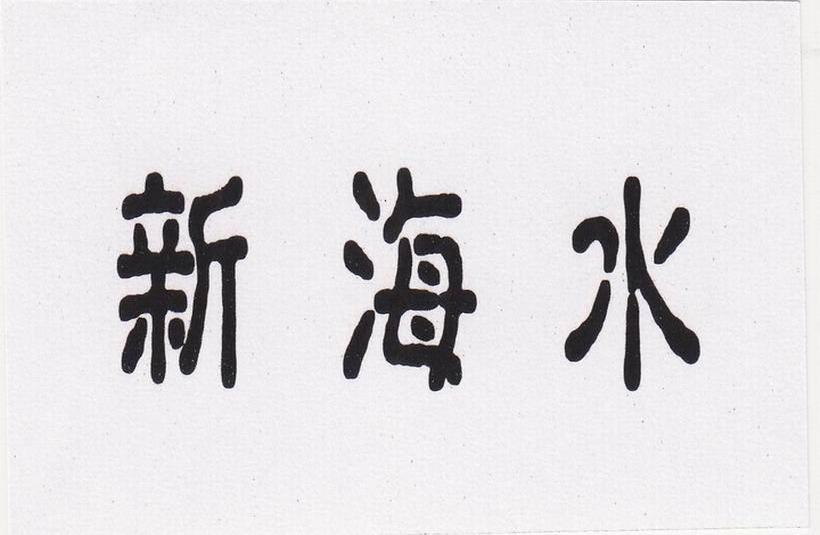 新海水